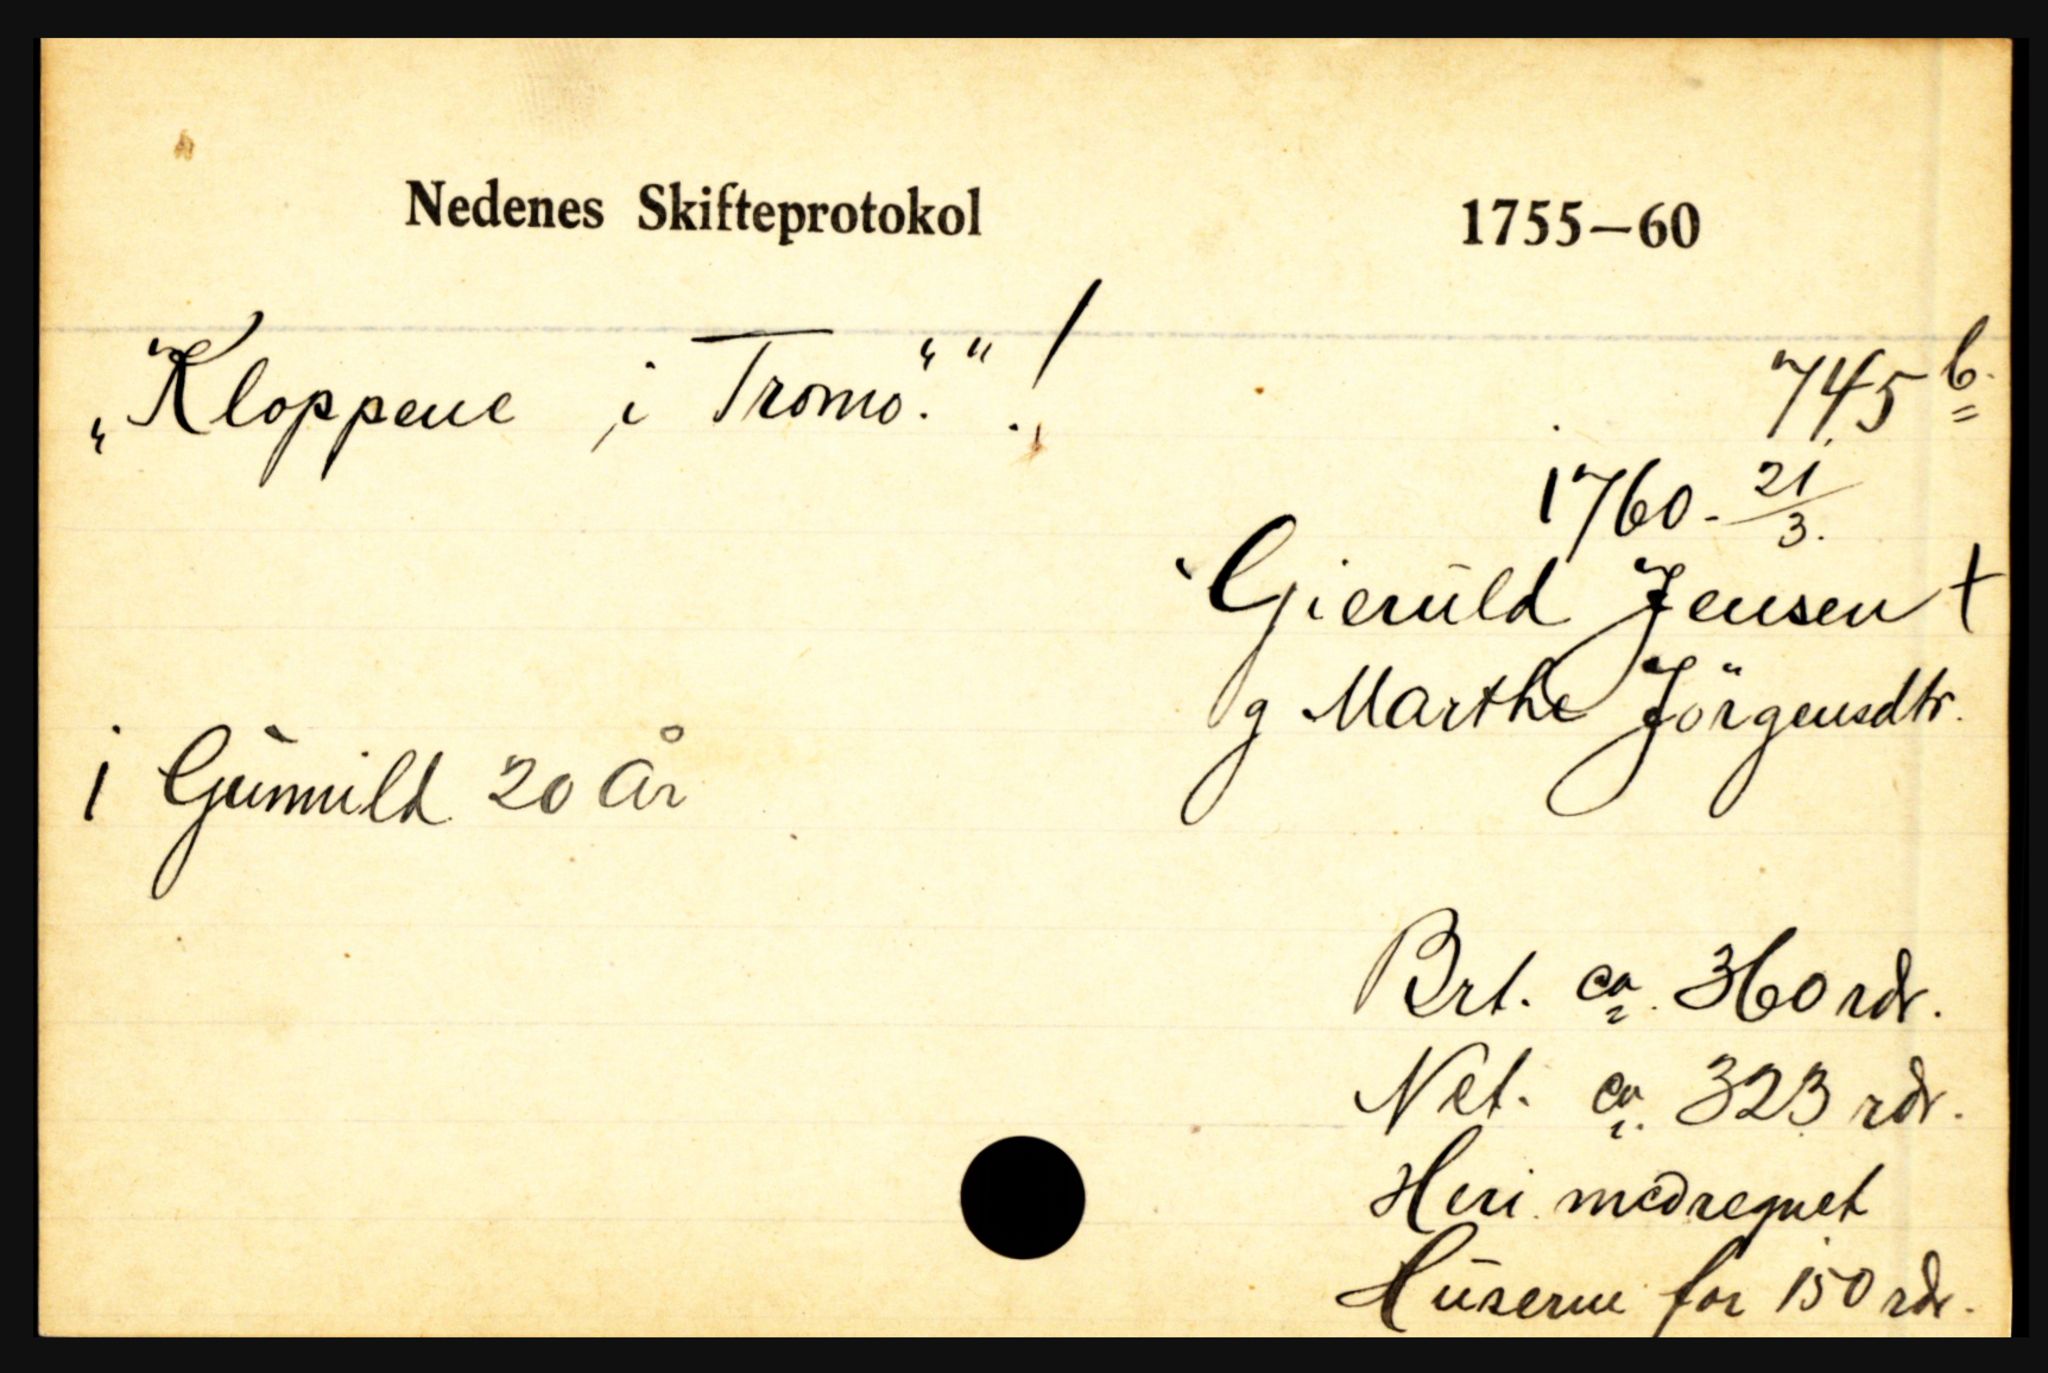 Nedenes Skifteprotokol 1755—60
„Kloppene i Tromö." !
745 b.
1760. 21/3.
Gieruld Jensen +
g Marthe Jörgensdtr.
1 Gunnild 20 År
Brt. ca. 360 rdr.
Net. ca. 323 rdr.
Heri medregnet
Huserne for 150 rdr.